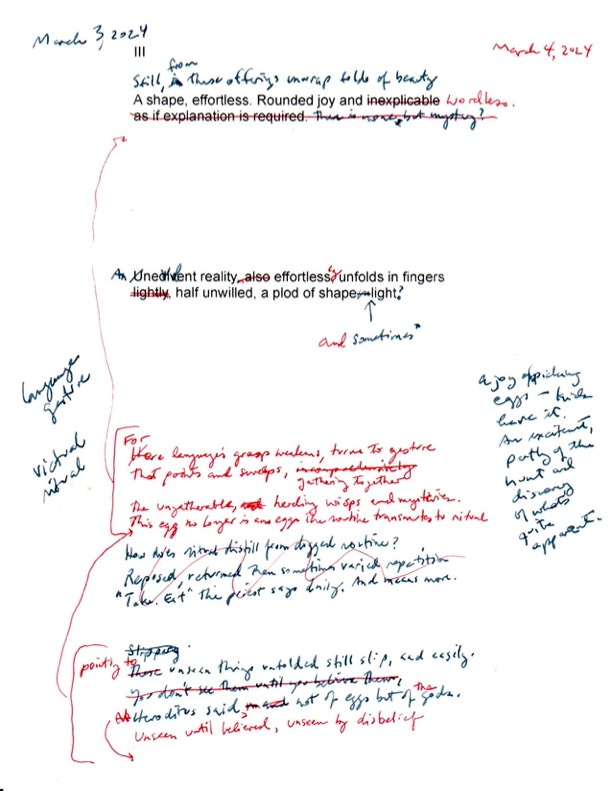 March 3, 2024
March 4, 2024
III
Still, from in these offerings unwrap folds of beauty
A shape, effortless. Rounded joy and inexplicable wordless.
as if explanation is required. There is none, but mystery?
An Unedilent reality, also effortlessly unfolds in fingers
lightly, half unwilled, a plod of shape light?
and sometimes
language
gesture
virtual
ritual
a joy of picking
eggs –
have it.
An excitement,
partly of the
hunt and
discovery
of what's
quite
apparent.
For
Here language's grasp weakens, turns to gesture
That points and sweeps, incomprehensibly
gathering together
The ungatherable, and herding wisps and mysteries.
This egg no longer is an egg. The routine transmutes to ritual
How does ritual distill from dogged routine?
Reposed, returned, then sometimes varied repetition
"Take. Eat" the priest says daily. And means more.
Slippery
pointing to These unseen things unfolded still slip, and easily.
You don't see them until you believe them,
Heroditus said, and not of eggs but of the gods.
Unseen until believed, unseen by disbelief